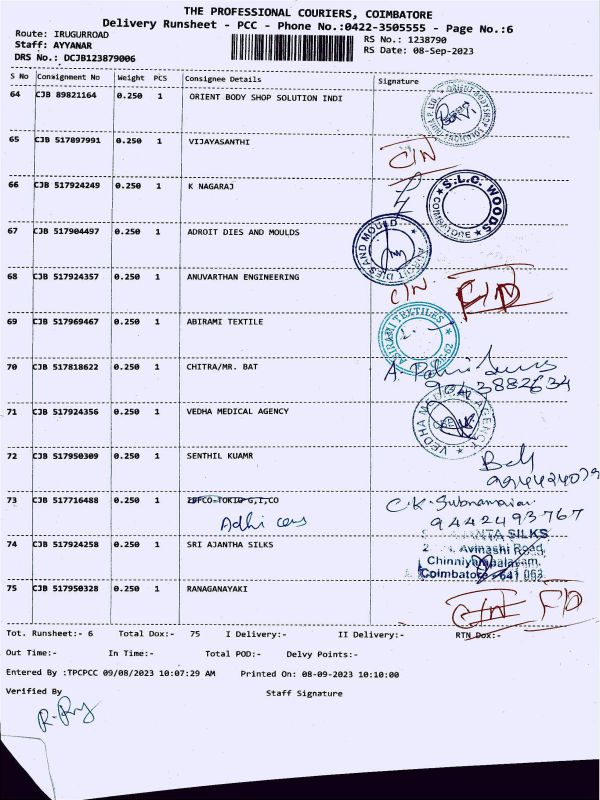 THE PROFESSIONAL COURIERS, COIMBATORE
Delivery Runsheet - PCC - Phone No.:0422-3505555 - Page No.:6
Route: IRUGURROAD
RS No.: 1238790
Staff: AYYANAR
RS Date: 08-Sep-2023
DRS No.: DCJB123879006
S No Consignment No Weight PCS Consignee Details Signature
64 CJB 89821164 0.250 1 ORIENT BODY SHOP SOLUTION INDI
65 CJB 517897991 0.250 1 VIJAYASANTHI
C/N
66 CJB 517924249 0.250 1 K NAGARAJ
S.L.C. WOODS
COIMBATORE
67 CJB 517904497 0.250 1 ADROIT DIES AND MOULDS
ADROIT DIES AND MOULD
68 CJB 517924357 0.250 1 ANUVARTHAN ENGINEERING
C/N
69 CJB 517969467 0.250 1 ABIRAMI TEXTILE
ABIRAMI TEXTILES
70 CJB 517818622 0.250 1 CHITRA/MR. BAT
9043882634
71 CJB 517924356 0.250 1 VEDHA MEDICAL AGENCY
VEDHA MEDICAL AGENCY
72 CJB 517950309 0.250 1 SENTHIL KUAMR
73 CJB 517716488 0.250 1 IFFCO-TOKIO G,I,CO
C.K.
Adhi
9442493767
74 CJB 517924258 0.250 1 SRI AJANTHA SILKS
AJANTA SILKS
Avinashi Road,
Chinniyampalayam,
Coimbatore - 641 062
75 CJB 517950328 0.250 1 RANAGANAYAKI
C/N FD
Tot. Runsheet:- 6 Total Dox:- 75 I Delivery:- II Delivery:- RTN Dox:-
Out Time:- In Time:- Total POD:- Delvy Points:-
Entered By :TPCPCC 09/08/2023 10:07:29 AM Printed On: 08-09-2023 10:10:00
Verified By Staff Signature